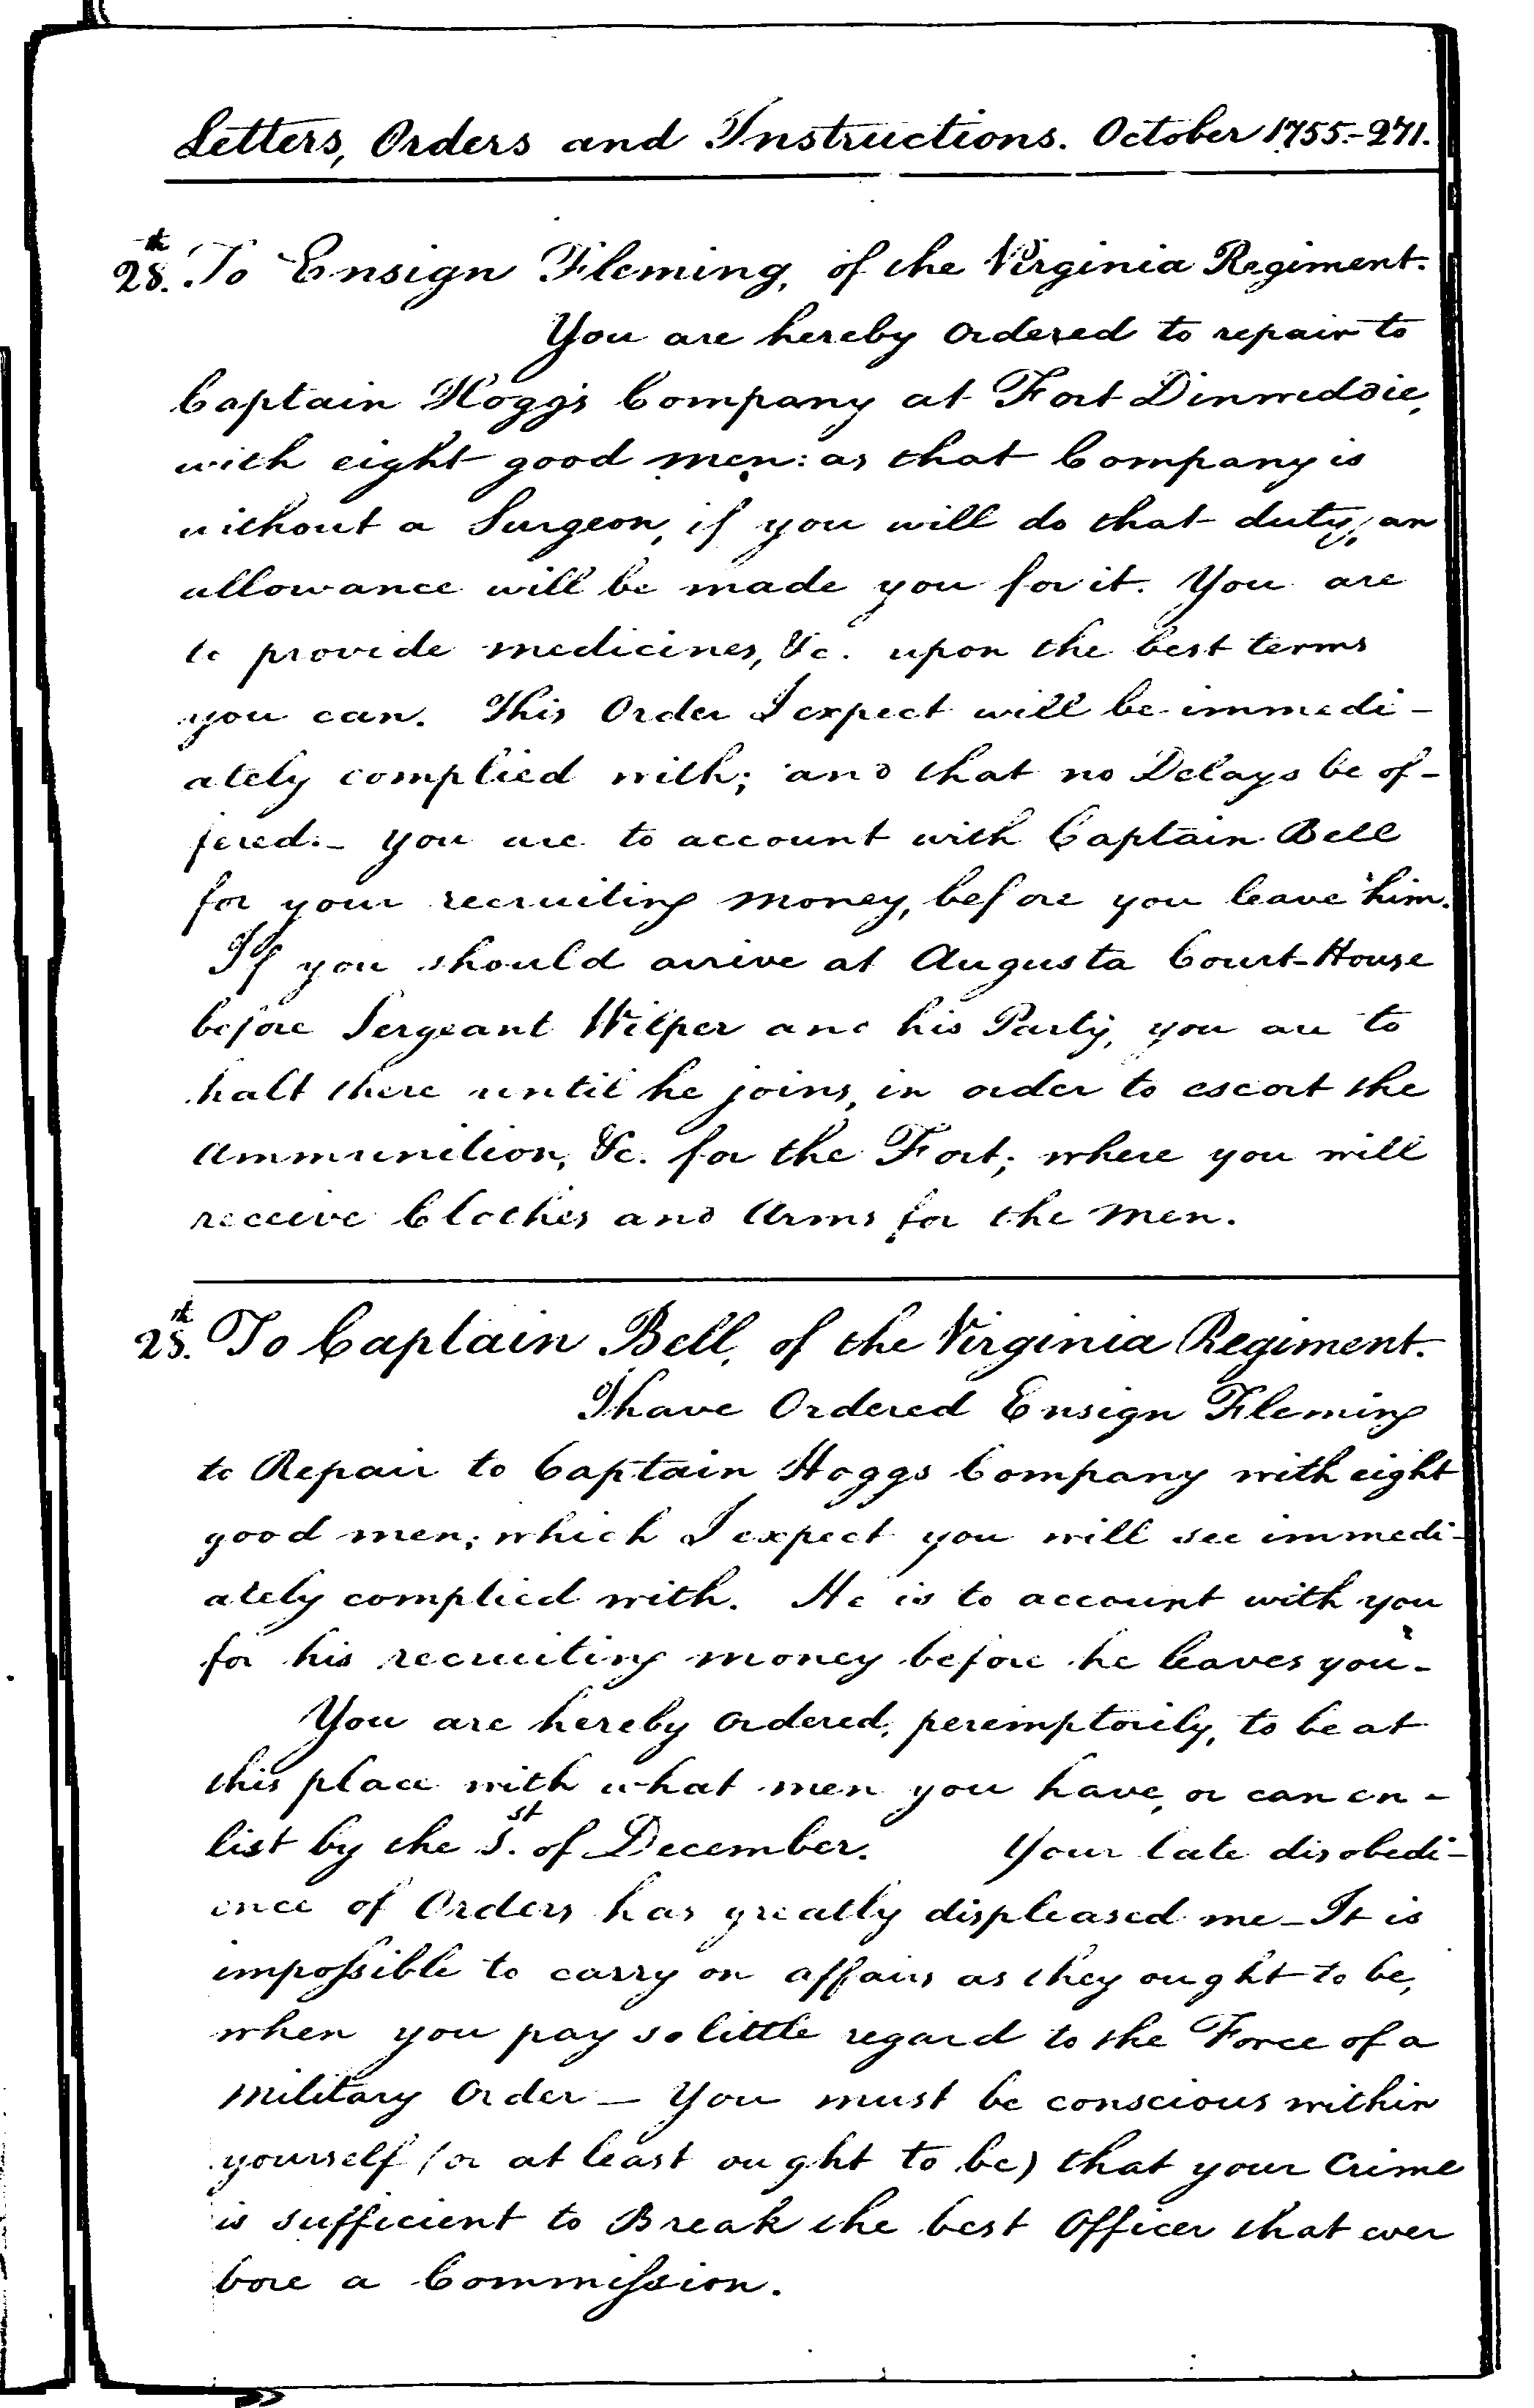 Letters, Orders and Instructions. October 1755.-271.
28.th To Ensign Fleming, of the Virginia Regiment.
You are hereby Ordered to repair to
Captain Hogg's Company at Fort Dinwiddie,
with eight good men: as that Company is
without a Surgeon, if you will do that duty, an
allowance will be made you for it. You are
to provide medicines, &c. upon the best terms
you can. This Order I expect will be immedi-
ately complied with; and that no Delays be of-
fered.- You are to account with Captain Bell
for your recruiting money, before you leave him.
If you should arrive at Augusta Court-House
before Sergeant Wilper and his Party, you are to
halt there until he joins, in order to escort the
Ammunition, &c. for the Fort; where you will
receive Clothes and Arms for the Men.
28.th To Captain Bell, of the Virginia Regiment.
I have Ordered Ensign Fleming
to Repair to Captain Hoggs Company with eight
good men; which I expect you will see immedi-
ately complied with. He is to account with you
for his recruiting money before he leaves you.-
You are hereby Ordered, peremptorily, to be at
this place with what men you have, or can en-
list by the 1.st of December. Your late disobedi-
ence of Orders has greatly displeased me-It is
impossible to carry on affairs as they ought to be,
when you pay so little regard to the Force of a
Military Order- You must be conscious within
yourself (or at least ought to be) that your Crime
is sufficient to Break the best Officer that ever
bore a Commission.